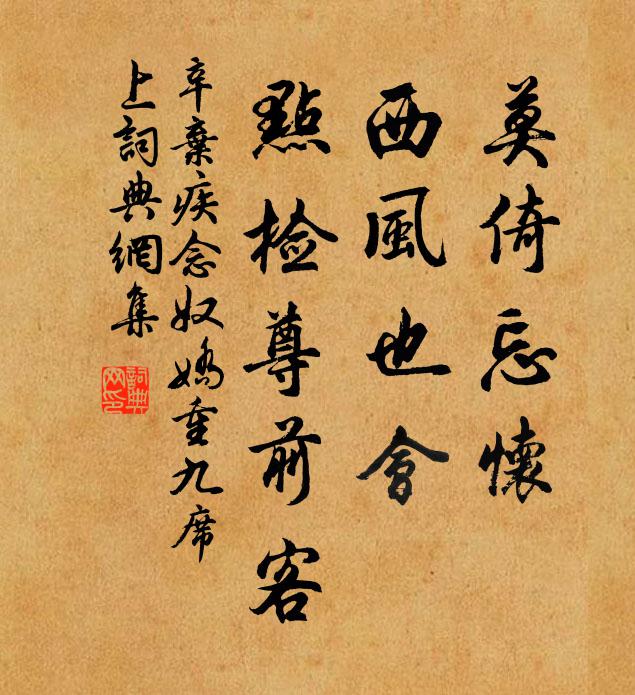 莫倚忘懷
西風也會
點檢尊前客
辛棄疾念奴嬌重九席
上詞典網集
詞典網印